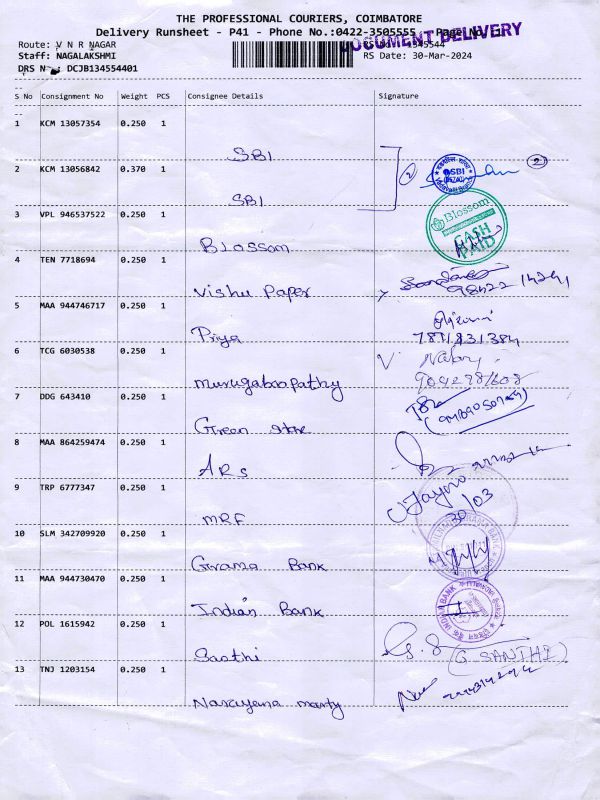 THE PROFESSIONAL COURIERS, COIMBATORE
Delivery Runsheet - P41 - Phone No.:0422-3505555 Page No
DOCUMENT DELIVERY
Route: V N R NAGAR
Staff: NAGALAKSHMI RS Date: 30-Mar-2024
DRS No : DCJB134554401
S No Consignment No Weight PCS Consignee Details Signature
1 KCM 13057354 0.250 1
SBI
2 KCM 13056842 0.370 1
SBI
2 SBI 2
3 VPL 946537522 0.250 1
Blossom
Blossom CASH PAID
4 TEN 7718694 0.250 1
Vishu Paper
5 MAA 944746717 0.250 1
Priya
7871831384
6 TCG 6030538 0.250 1
murugaboopathy
7 DDG 643410 0.250 1
Green
8 MAA 864259474 0.250 1
ARS
9 TRP 6777347 0.250 1
MRF
30/03
10 SLM 342709920 0.250 1
Grama Bank
11 MAA 944730470 0.250 1
Indian Bank
INDIAN BANK
12 POL 1615942 0.250 1
Saathi
G. SANTHI
13 TNJ 1203154 0.250 1
Narayana